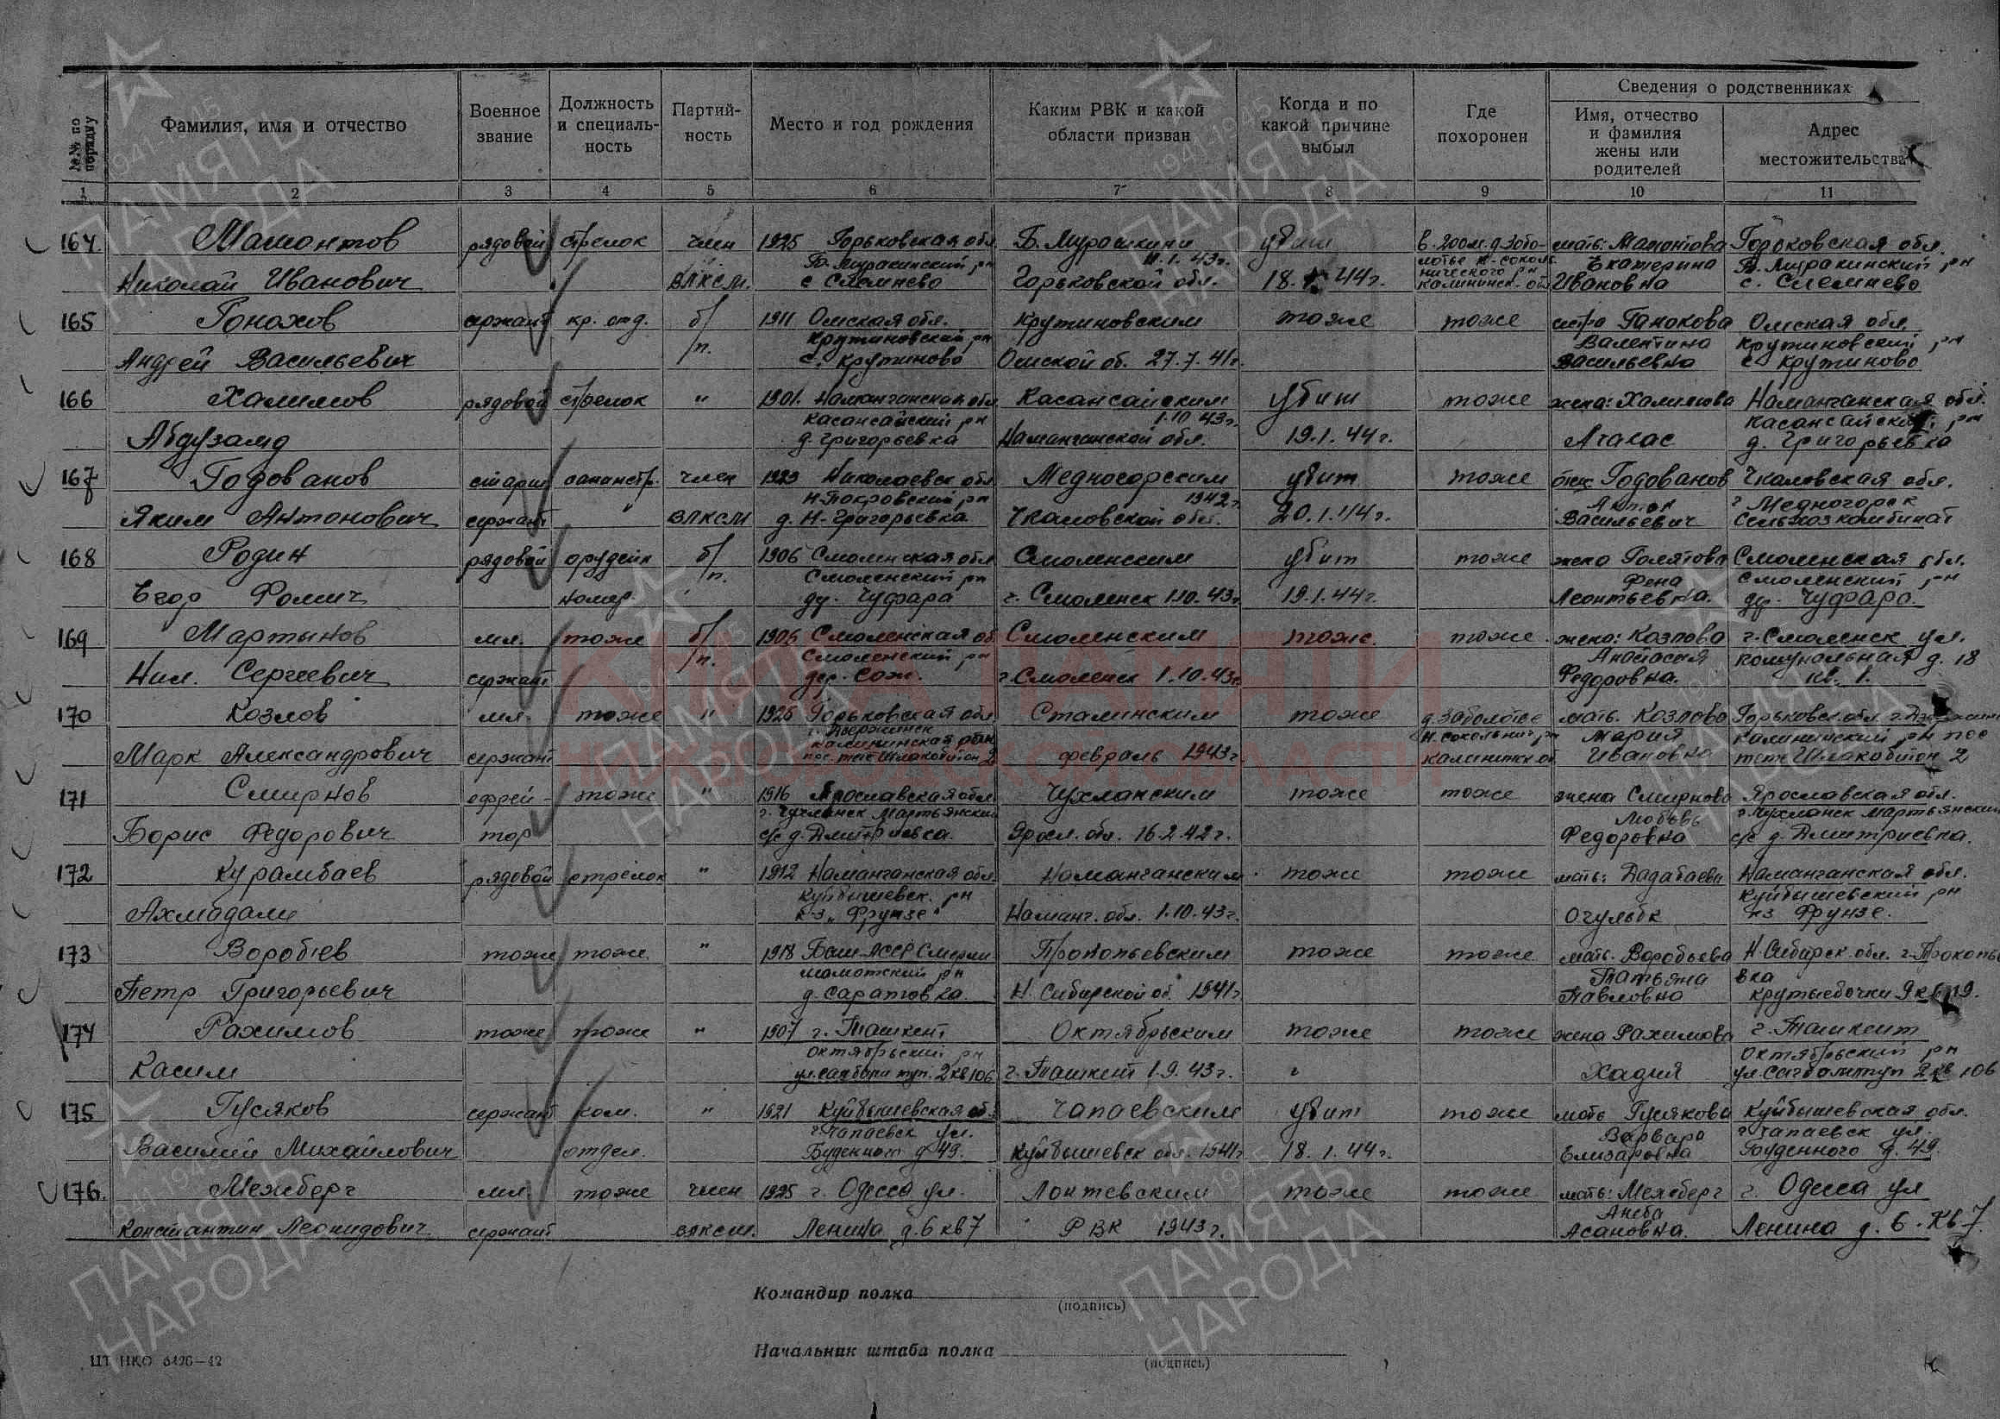 №№ по порядку
Фамилия, имя и отчество
Военное звание
Должность и специаль-ность
Партий-ность
Место и год рождения
Каким РВК и какой области призван
Когда и по какой причине выбыл
Где похоронен
Сведения о родственниках
Имя, отчество и фамилия жены или родителей
Адрес местожительства
1 2 3 4 5 6 7 8 9 10 11
164 Мамонтов рядовой стрелок член 1925 Горьковская обл. Б. Мурашкини убит в 200 м. д. Забо- мать: Мамонтова Горьковская обл.
Николай Иванович ВЛКСМ с Слемнево Горьковской обл. 18.1.44г. Екатерина Ивановна Б. Муракинский рн с. Слемнево
165 Гонохов сержант кр. отд. б/ 1911 Омская обл. Крутиновским тоже тоже Ганокова Омская обл
Андрей Васильевич /п. Крутиновский рн с. Крутиново Омской об. 27.7.41г. Валентина Васильевна Крутиновский рн с Крутиново
166 Халимов рядовой стрелок " 1901. Наманганская обл Касансайским убит тоже жена: Халимова Наманганская обл.
Абдузамд Касансайский рн д. Григорьевка 1.10.43г. Наманганской обл. 19.1.44г. Касансайский рн д. Григорьевка
167 Годованов старш член 1923 Николаевск обл Медногорским убит тоже Годованов Чкаловская обл.
Яким Антонович сержант " ВЛКСМ Н-Покровский рн д. Н-Григорьевка 1942г Чкаловской обл. 20.1.44г. Антон Васильевич г Медногорск Сельхозкомбинат
168 Родин рядовой орудейн б/ 1906 Смоленская обл Смоленским убит тоже жена Смоленская обл.
Егор Фомич номер. /п. Смоленский рн др. Чуфара г. Смоленск 1.10.43г 19.1.44г. Леонтьевна. Смоленский рн др. Чуфаро.
169 Мартынов мл. тоже б/ 1905 Смоленская об Смоленским тоже. тоже. жена: Козлова г. Смоленск ул.
Нил. Сергеевич сержант /п. Смоленский рн дер. Сож. г. Смоленск 1.10.43г Анастасия Федоровна. комунальная д. 18 кв. 1.
170 Козлов мл. тоже " 1925 Горьковская обл Сталинским тоже д. Заболотье мать. Козлова Горьковск. обл. г. Дзержин
Марк Александрович сержант г. Дзержинск февраль 1943г Н. Сокольнич. рн Калининск об Мария Ивановна Калининский рн пос
171 Смирнов ефрей- тоже " 1916 Ярославская обл Чухломским тоже тоже жена Смирнова Ярославская обл.
Борис Федорович тор с/с д. Дмитриевка. Яросл. обл. 16.2.42г. Любовь Федоровна с/с д. Дмитриевка.
172 Курамбаев рядовой стрелок " 1912 Наманганская обл. Наманганским тоже тоже мать: Дадабаева Наманганская обл.
Ахмадали Куйбышевск. рн к-з „Фрунзе" Наманг. обл. 1.10.43г. Куйбышевский рн кз Фрунзе.
173 Воробьев тоже тоже. " 1918 Баш АССР Прокопьевским тоже тоже мать. Воробьева Н Сибирск. обл. г. Прокопь
Петр Григорьевич д. Саратовка. Н. Сибирской об. 1941г Татьяна Павловна вка
174 Рахимов тоже тоже " 1907 г. Ташкент Октябрьским тоже тоже жена Рахимова г. Ташкент
Касим Октябрьский рн г. Ташкент 1.9.43г. Хадия Октябрьский рн
175 Гусяков сержант ком. " 1921 Куйбышевская обл Чапаевским убит тоже мать Гусякова Куйбышевская обл.
Василий Михайлович отдел. г. Чапаевск ул. Буденного д 49. Куйбышевск обл. 1941г 18.1.44г. Варвара Елизаровна г Чапаевск ул. Будденного д. 49.
176. Межберг мл. тоже член 1925 г. Одесса ул. тоже тоже мать: Межберг г. Одесса ул
Константин Леонидович сержант ВЛКСМ. Ленина д. 6 кв 7 РВК 1943г. Асановна. Ленина д. 6. кв. 7.
Командир полка
(подпись)
Начальник штаба полка
(подпись)
ЦТ НКО 6426—42
1941-1945
ПАМЯТЬ
НАРОДА
КНИГА ПАМЯТИ
НИЖЕГОРОДСКОЙ ОБЛАСТИ